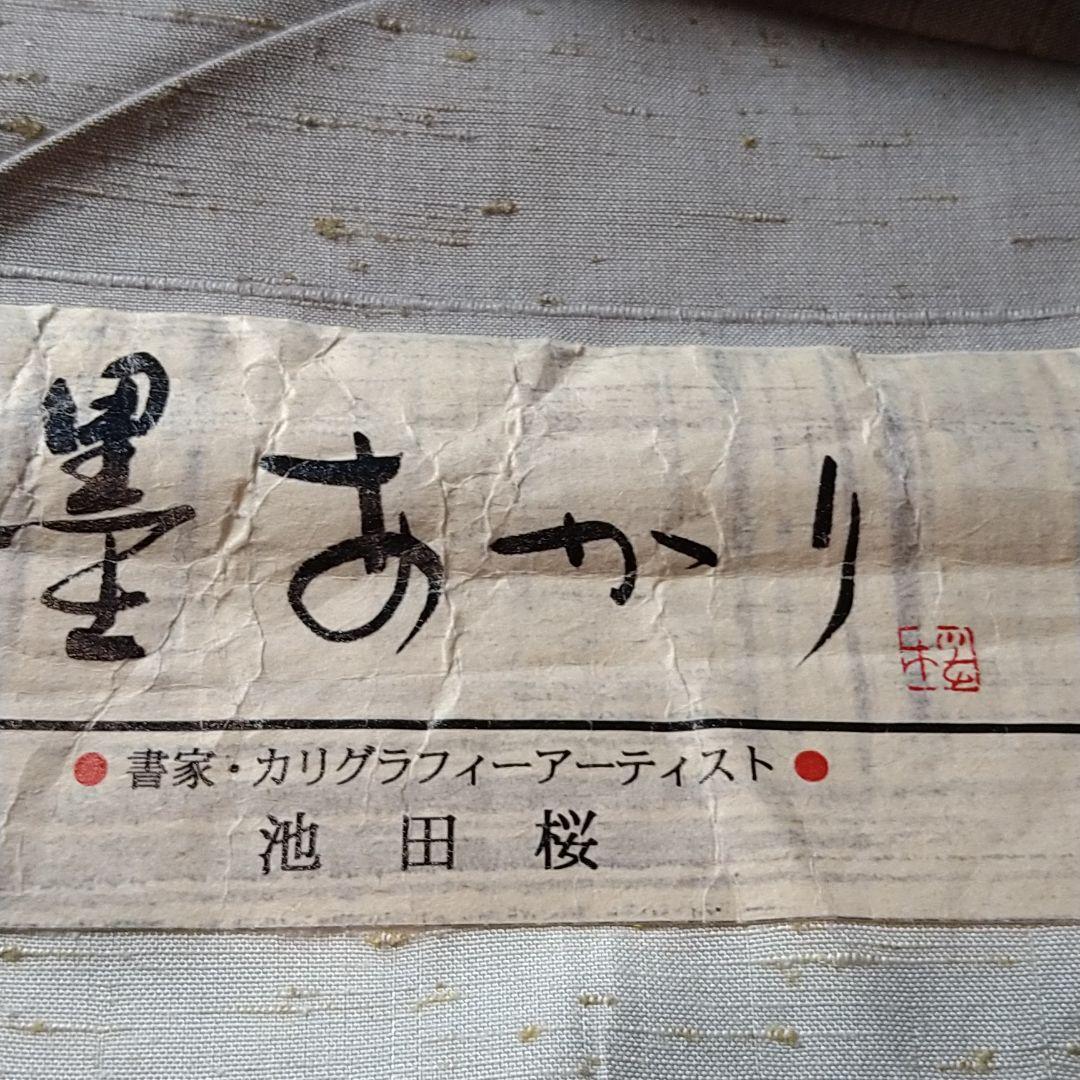 墨あかり
桜
●書家・カリグラフィーアーティスト●
池田桜